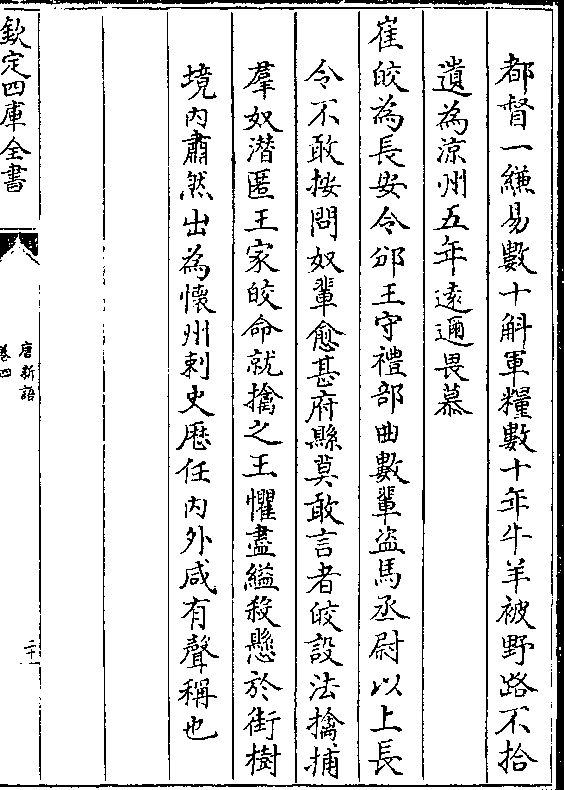 都督一縑易數十斛軍糧數十年牛羊被野路不拾
遺為涼州五年遠邇畏慕
崔皎為長安令邠王守禮部曲數輩盜馬丞尉以上長
令不敢按問奴輩愈甚府縣莫敢言者皎設法擒捕
羣奴潛匿王家皎命就擒之王懼盡縊殺懸於街樹
境內肅然出為懷州刺史歷任內外咸有聲稱也
欽定四庫全書
唐新語
卷四